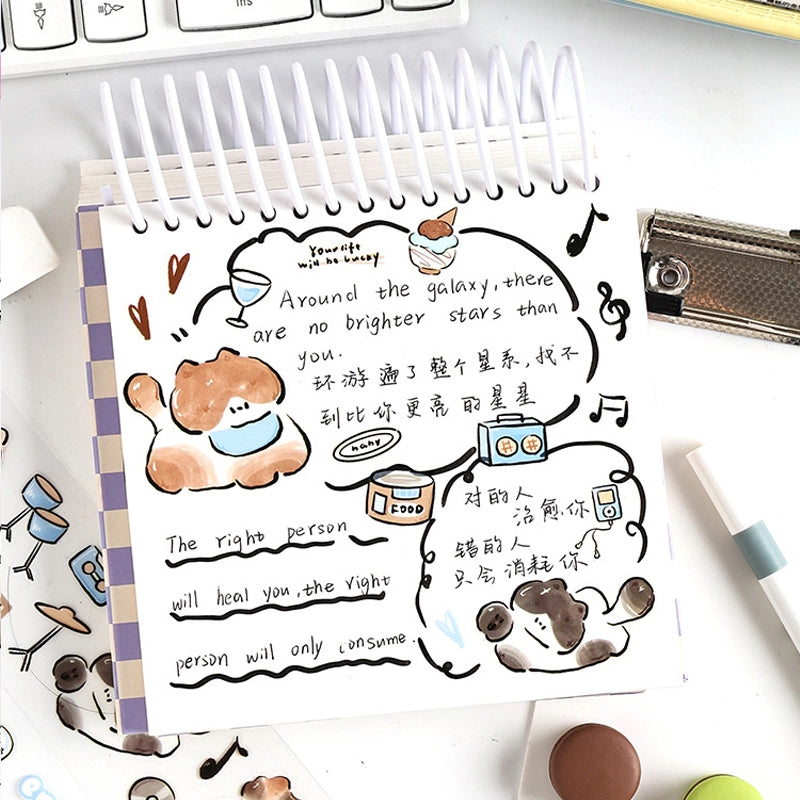 Ins
Your life
will be lucky
Around the galaxy, there
are no brighter stars than
you.
环游遍了整个星系,找不
到比你更亮的星星
FOOD
对的人
治愈你
错的人
只会消耗你
The right person
will heal you, the right
person will only consume.